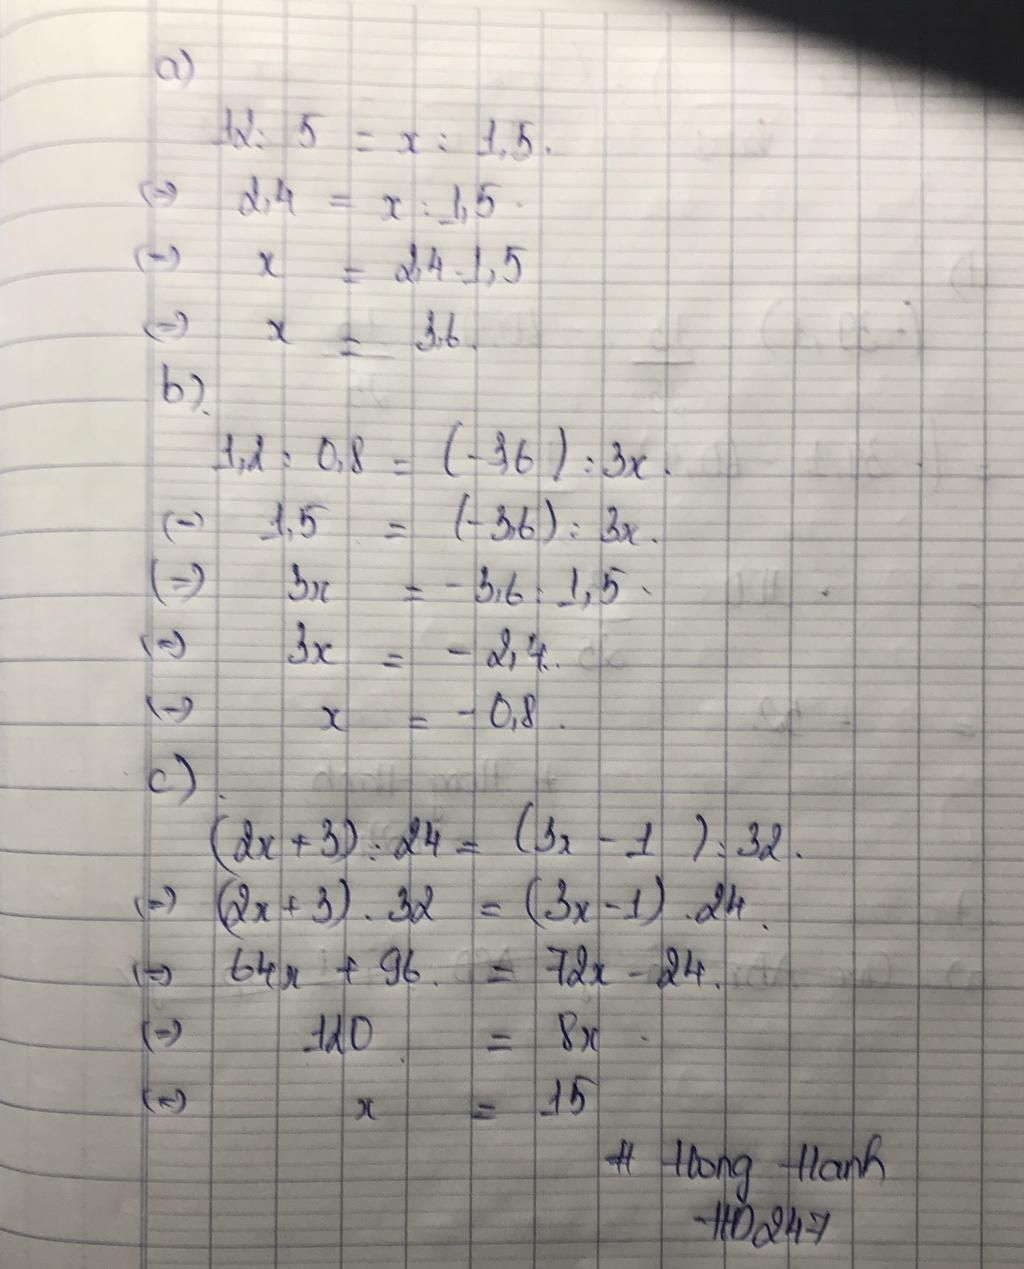 a)
12 : 5 = x : 1,5.
(=) 2,4 = x : 1,5.
(=) x = 2,4 . 1,5
(=) x = 3,6.
b)
1,2 : 0,8 = (-3,6) : 3x.
(=) 1,5 = (-3,6) : 3x.
(=) 3x = -3,6 : 1,5.
(=) 3x = -2,4.
(=) x = -0,8.
c)
(2x + 3) : 24 = (3x - 1) : 32.
(=) (2x + 3) . 32 = (3x - 1) . 24.
(=) 64x + 96 = 72x - 24.
(=) 120 = 8x.
(=) x = 15
# Hong Hanh
HD247